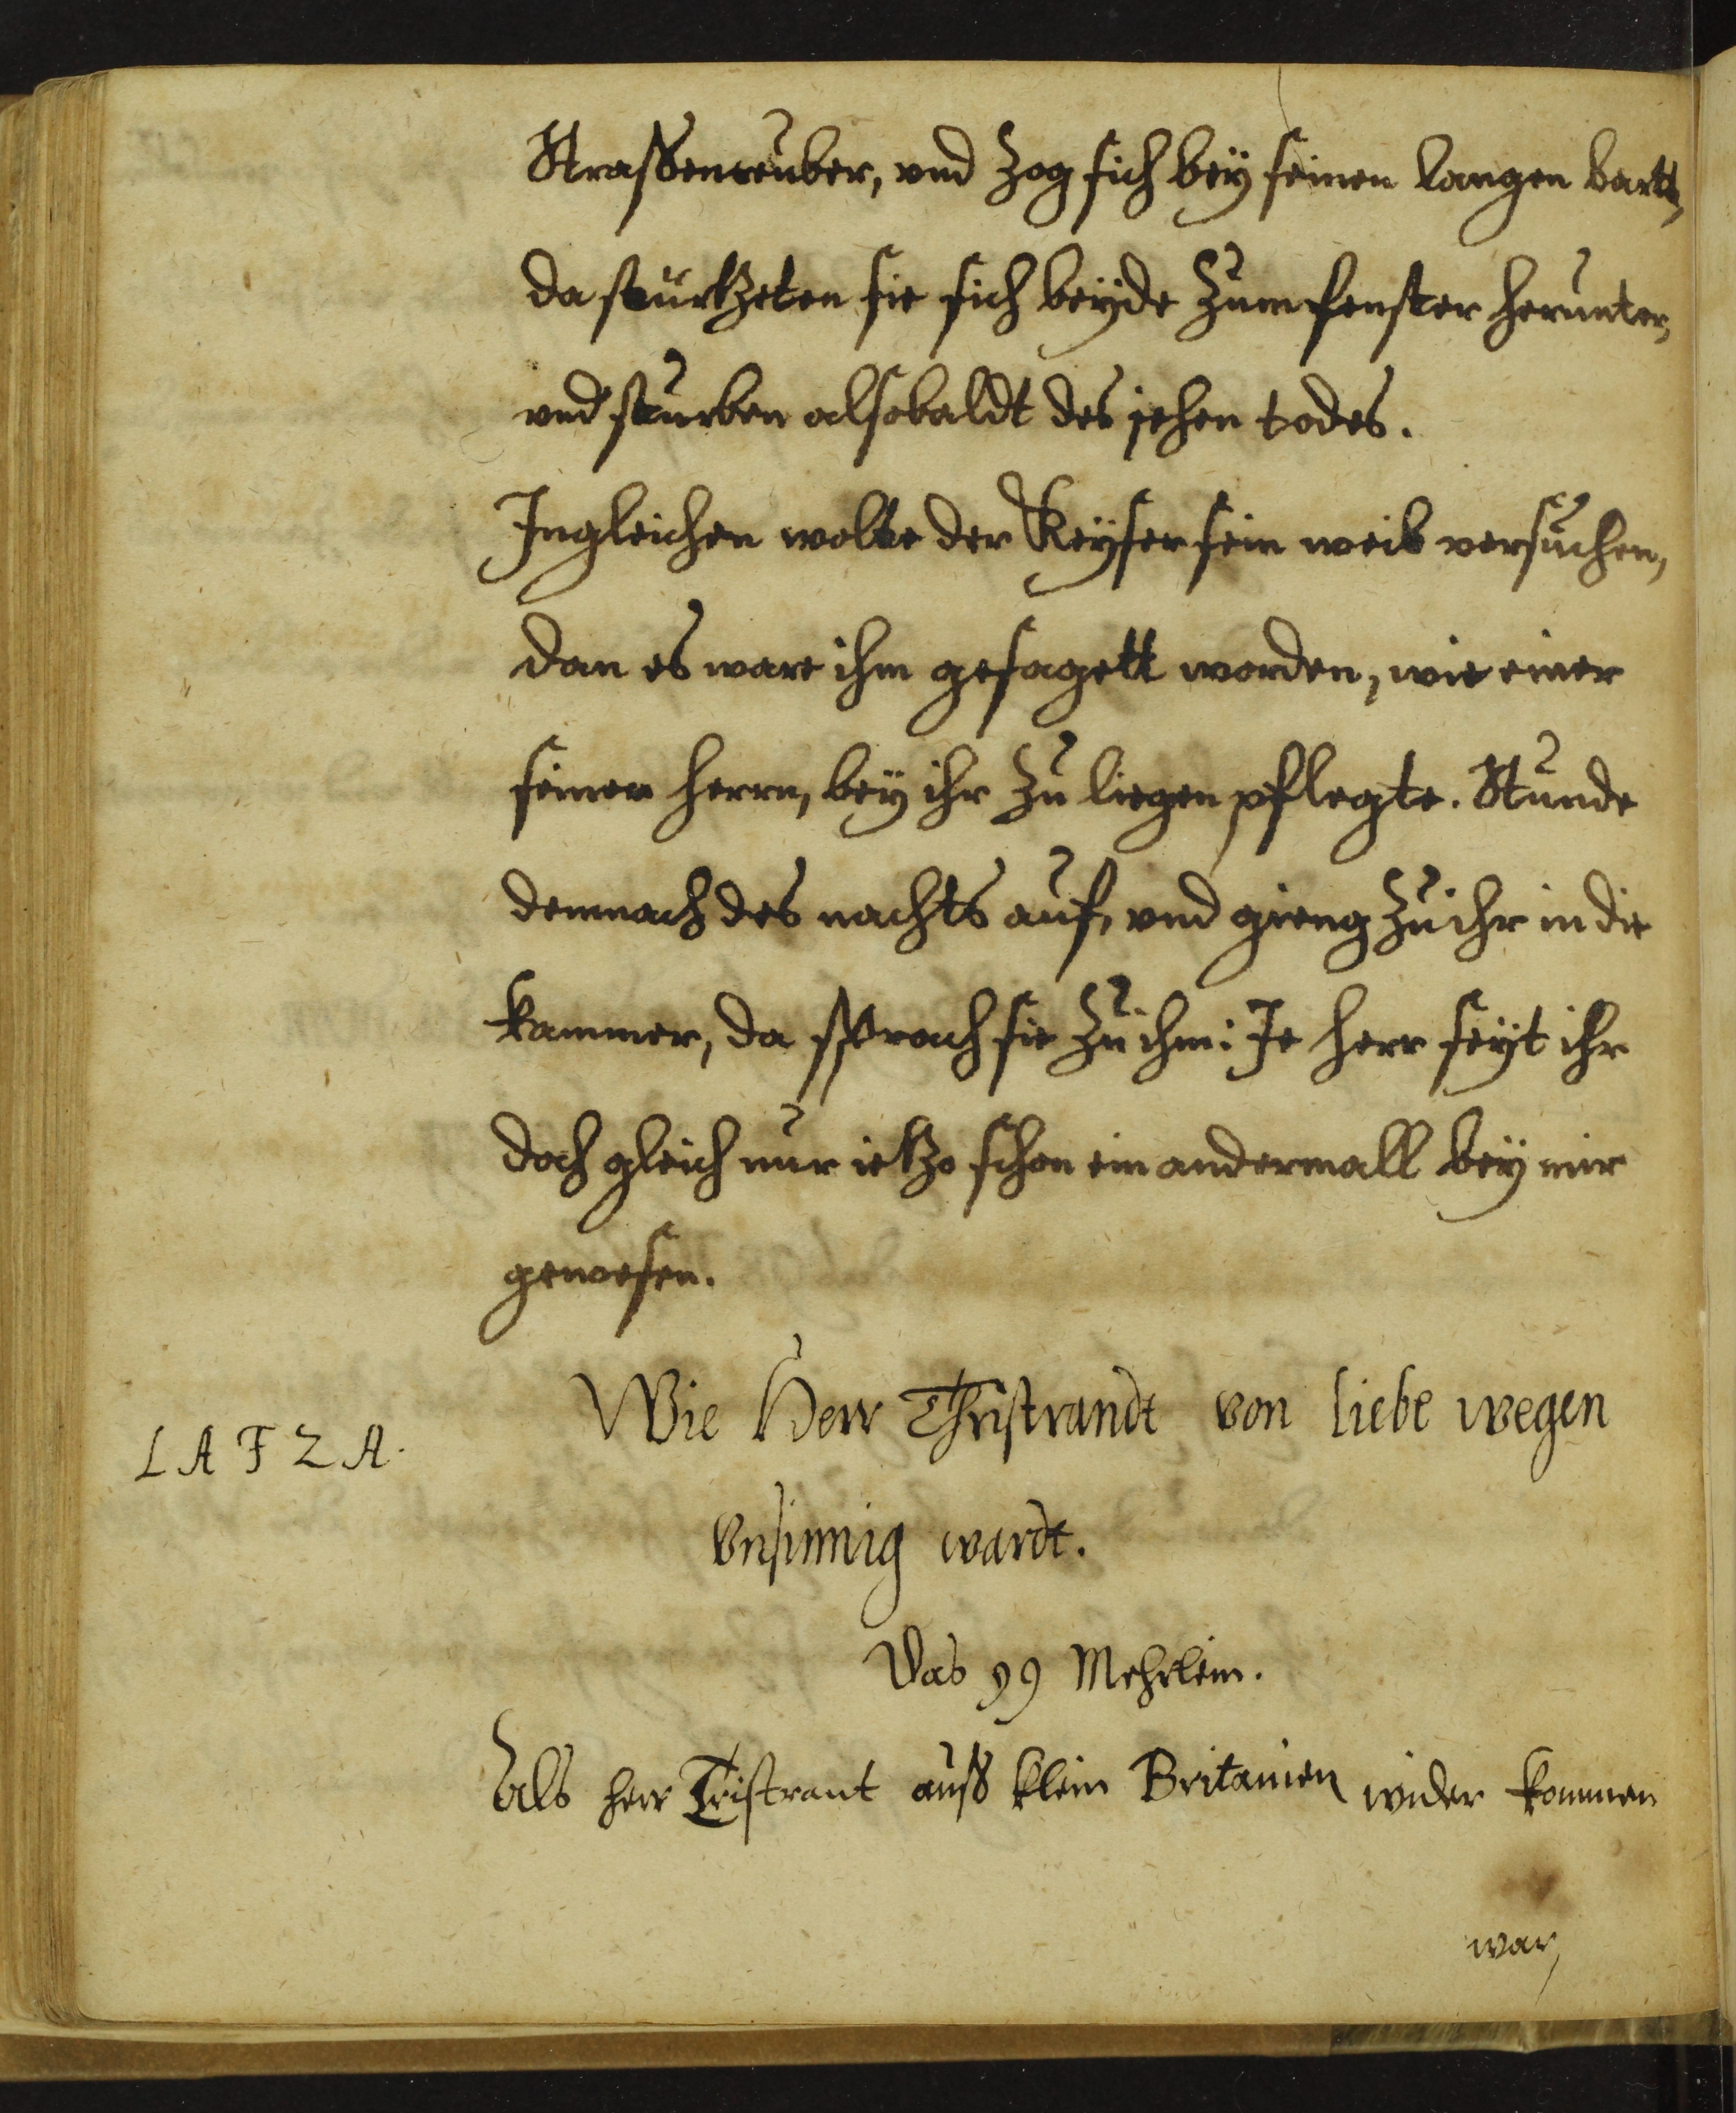 Strassenreuber, vnd zog sich bey seinen langen bartt,
da stürtzeten sie sich beyde zum fenster herunter,
vnd sturben alsobaldt des jehen todes.
Ingleichen wolte der Keyser sein weib versuchen,
dan es ware ihm gesagett worden, wie einer
seiner herrn, bey ihr zu liegen pflegte. Stunde
demnach des nachts auf, vnd gieng zu ihr in die
kammer, da sprach sie zu ihm: Je herr seyt ihr
doch gleich nur ietzo schon ein andermall bey mir
gewesen.
Wie Herr Thristrandt von liebe wegen
L A F Z A.
vnsinnig wardt.
Das 99 Mehrlein.
Als herr Tristrant auß klein Britanien wider kommen
war,